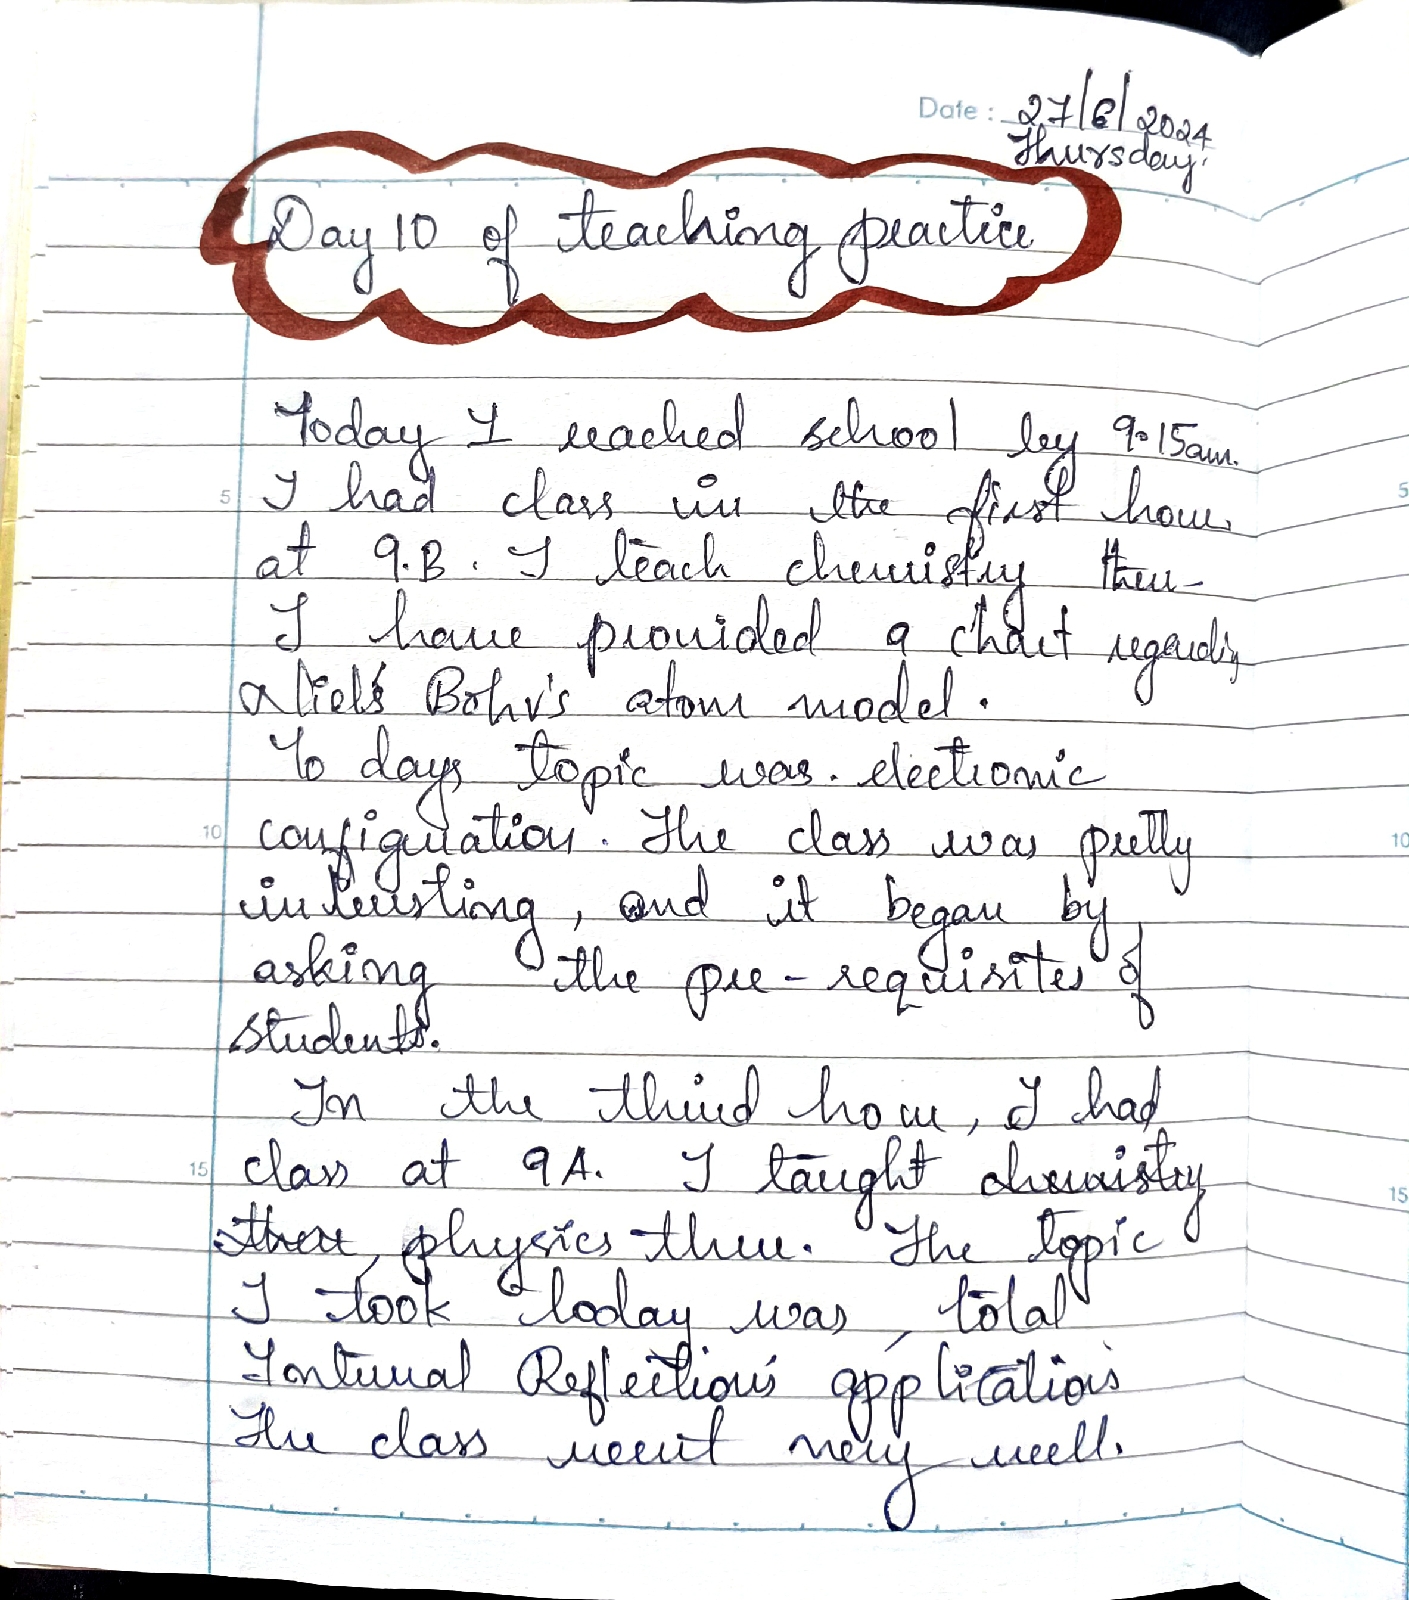 Date : 27/6/2024
Thursday.
Day 10 of teaching practice
Today I reached school by 9.15am.
5 I had class in the first hour 5
at 9.B. I teach chemistry there
I have provided a chart regarding
Niels Bohr's atom model.
To days topic was. electronic
10 configuration. The class was pretty 10
interesting, and it began by
asking the pre-requisites of
students.
In the third hour, I had
15 class at 9A. I taught chemistry 15
there, physics there. The topic
I took today was, total
Internal Reflection's applications
The class went very well.